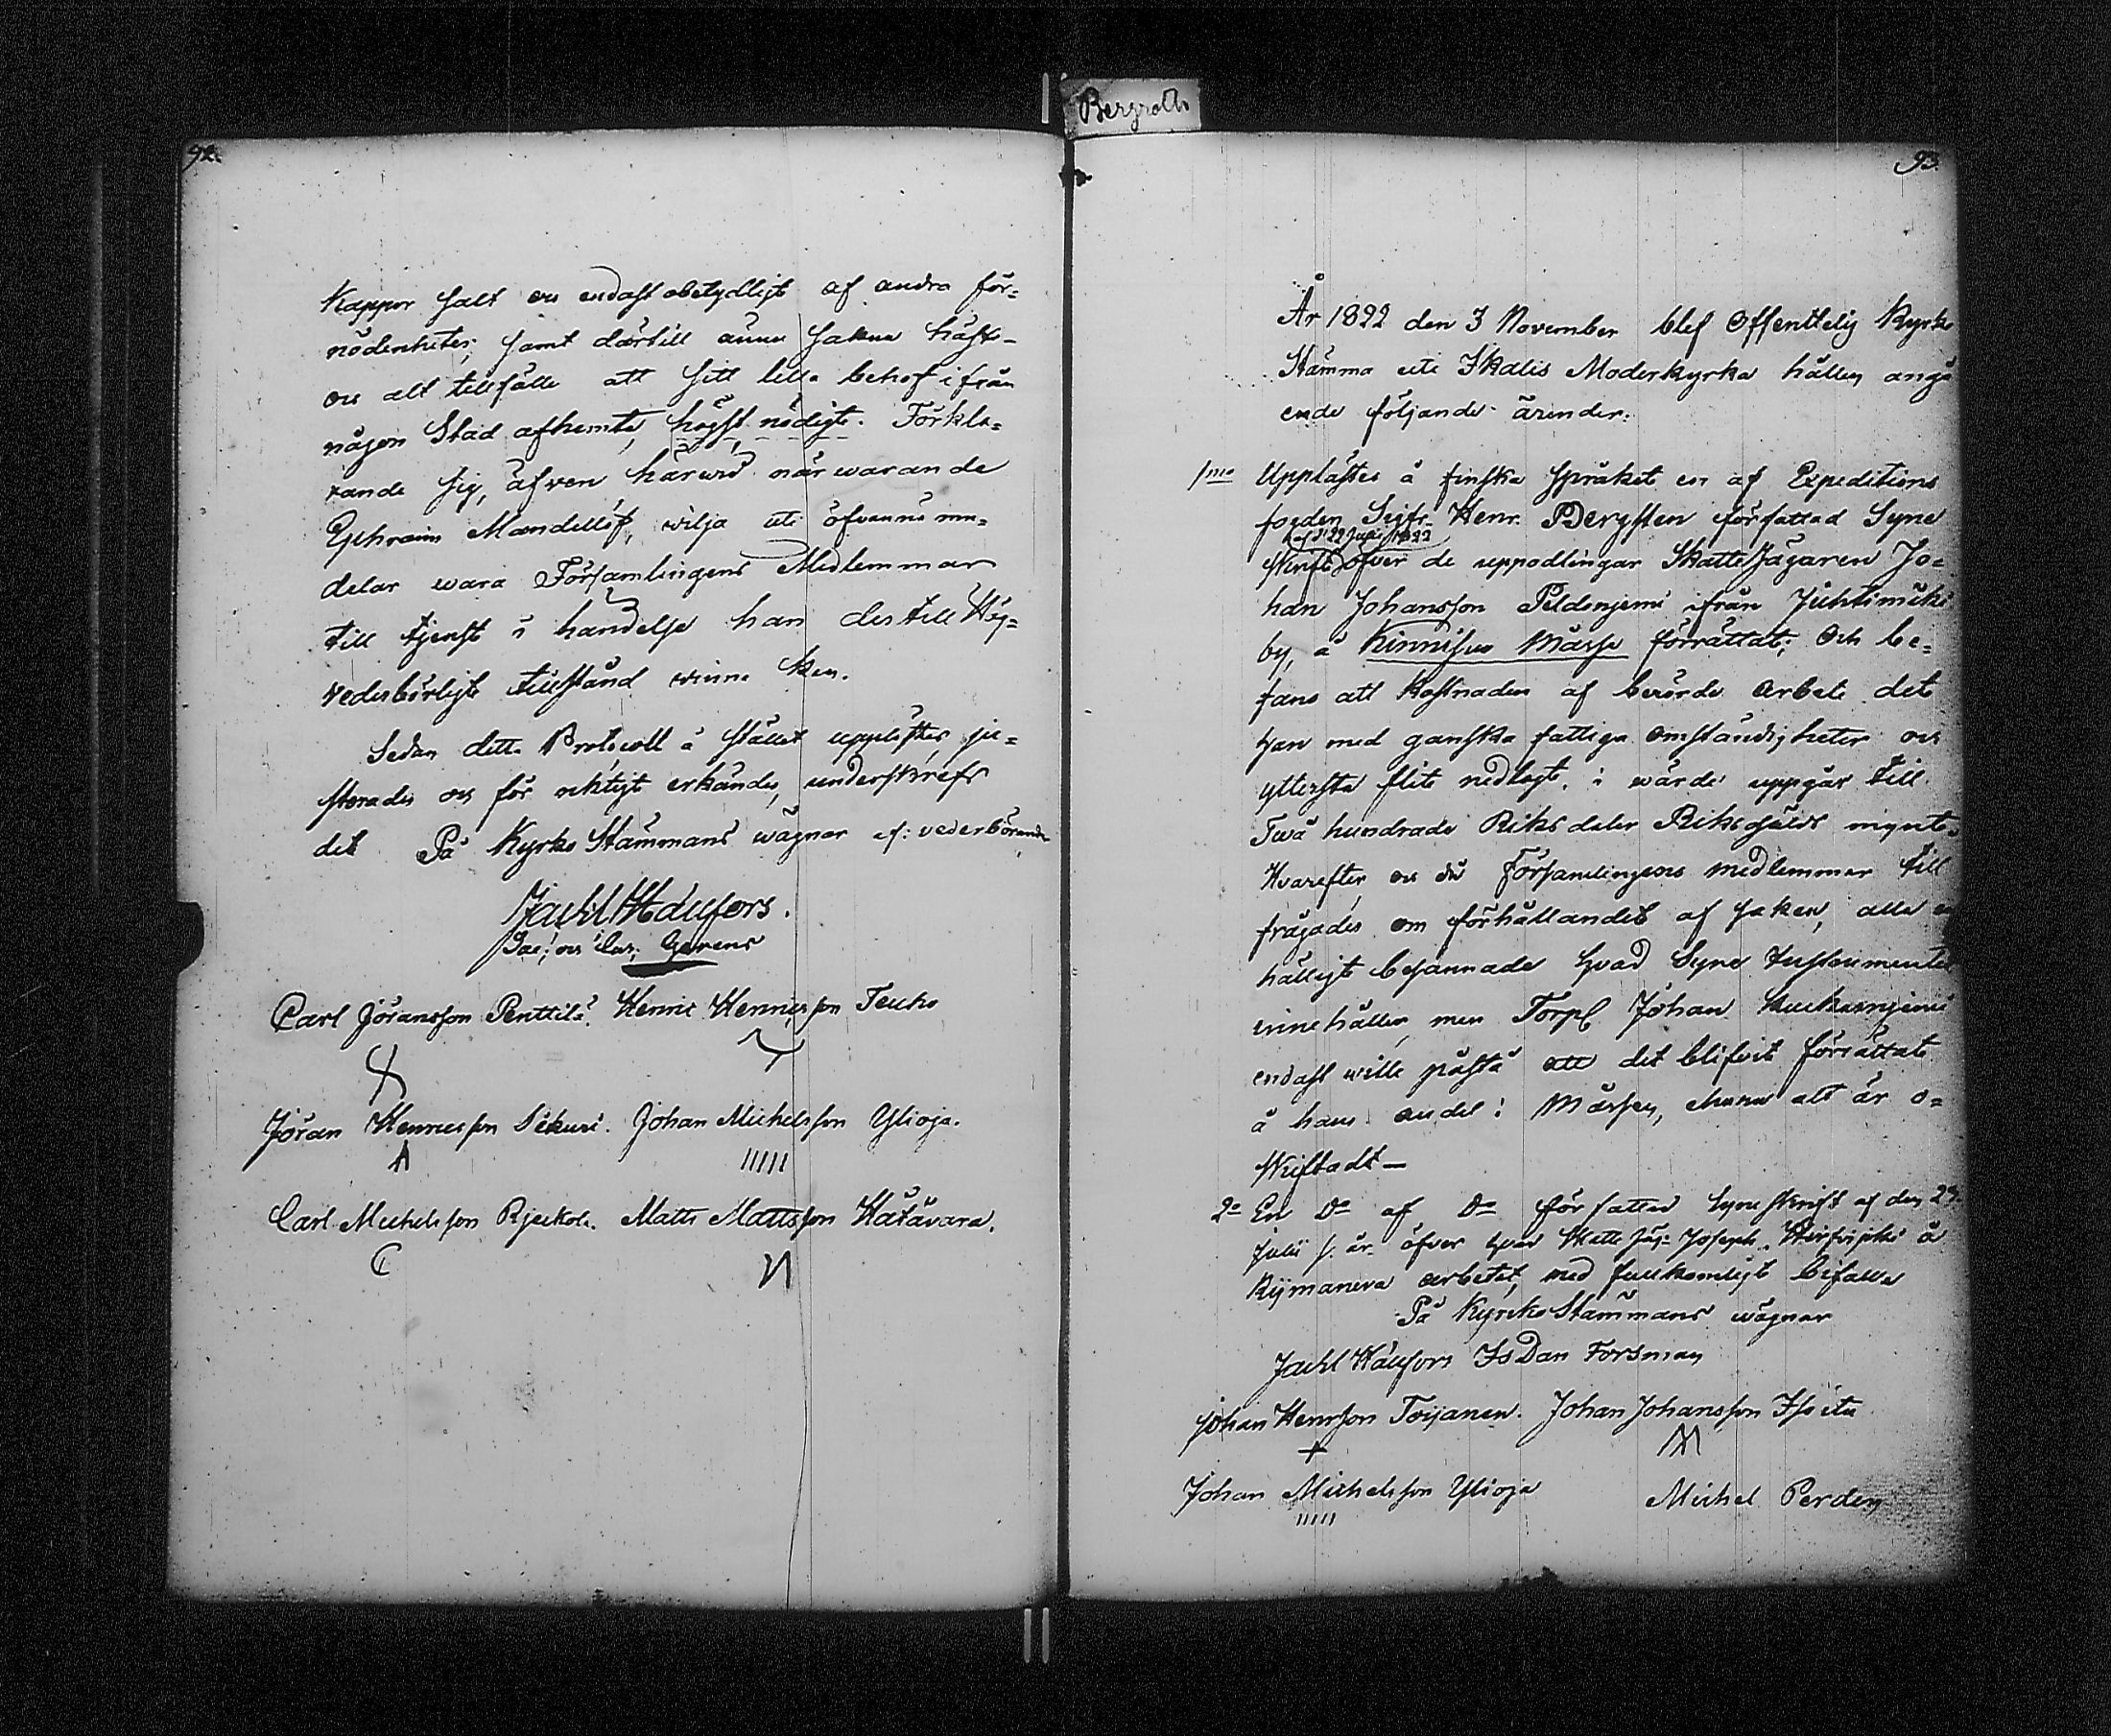 Bergroth
92.
Kappor salt och endast obetydligt af andra för=
nödenheter; samt därtill ännu sakna häst-
och alt tillfälle att sitt lilla behof ifrån
någon Stad afhemta, högst nödigt. Förkla=
rande sig, äfven härwid närwarande
Ephraim Mandellöf, wilja uti öfvannämn=
delar wara Församlingens Medlemmar
till tjenst i handelse han der till Hög=
vederbörligt tillstånd winna kan.
Sedan detta Protocoll å stället upplästes, ju=
sterades och för riktigt erkändes, underskrefs
det På Kyrko Stämmans wägnar af: vederbörande
Jachl Haufors.
Sac: och Cap: Gerens
Carl Jöransson Penttilä. Henric Henricsson Teuho
Jöran Henricsson Sikuri. Johan Michelsson Ylioja.
Carl Michelsson Rjeckola. Matts Mattsson Hatavara.
93.
År 1822 den 3 November blef Offenttelig Kyrko
Stämma uti Ikalis Moderkyrka hållen angå
ende följande ärender.
1mo Upplästes å finska språket en af Expeditions
fogden Sigfr. Henr. Bergsten författad Syne
af d. 22 Julii 1822
Skrift öfver de uppodlingar Skatte Jägaren Jo=
han Johansson Peldonjemi ifrån Juhtimäki
by, å Kinnisuo Måsse förrättat; Och be=
fans att kostnaden af berörde arbete det
han med ganska fattiga omständigheter och
yttersta flit nedlagt, i wärde uppgår till
Twå hundrade Riksdaler Riksgälds mynt.
Hvarefter och då Församlingens medlemmar till
frågades om förhållandet af saken, alla en
hälligt besannade hvad Syne Instrumentet
innehåller, men Torp. Johan
endast wille påstå att det blifvit förrättat
å hans andel i Måssen, ehuru alt är o=
skiftadt—
2o En Do af Do författad Syneskrift af den 23
Julii s. år öfver hvad Skatte Jäg: Joseph å
Rijmaneva arbetat, med fullkomligt bifall
På Kyrko Stämmans wägnar
Jachl Haufors Is Dan Forsman
Johan Henrsson Toijanen. Johan Johansson Isoita
Johan Michelsson Ylioja Michel Perden